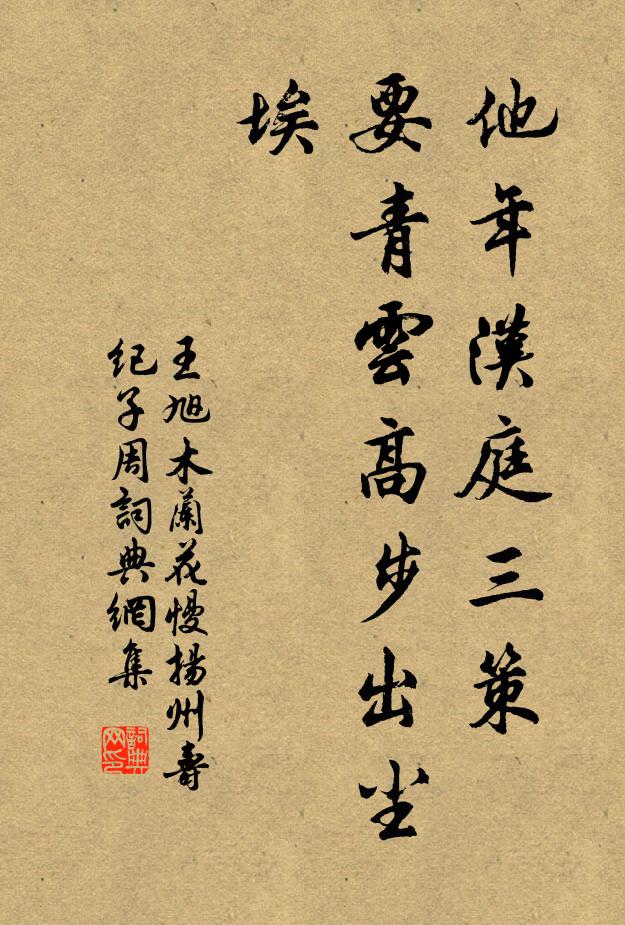 他年漢庭三策
要青雲高步出尘
埃
王旭木蘭花慢揚州壽
纪子周詞典網集
詞典网印